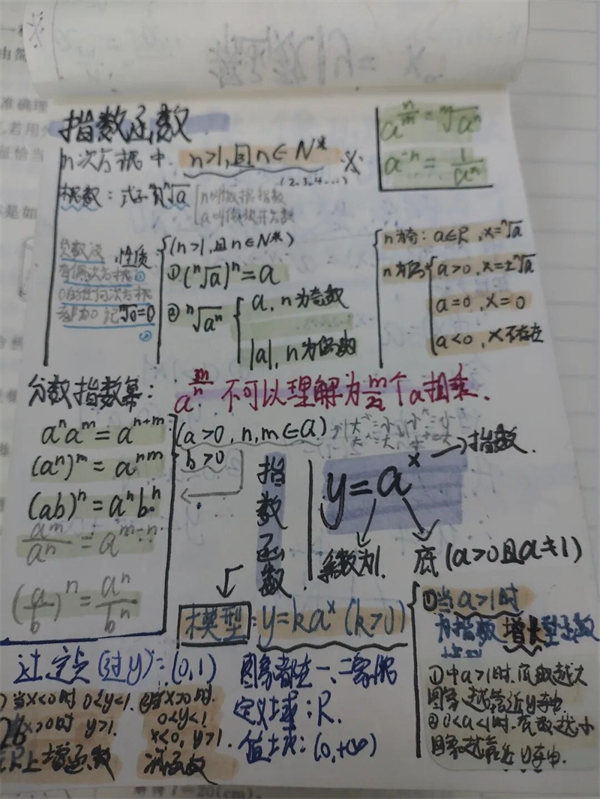 指数函数
a^(n/m) = ᵐ√aⁿ
a⁻ⁿ = 1/aⁿ
n次方根中. n>1,且n∈N* ※
(2.3.4....)
根式:式子ⁿ√a n叫做根指数
a叫做被开方数
性质
(n>1,且n∈N*)
①(ⁿ√a)ⁿ=a
②ⁿ√aⁿ
a, n为奇数
|a|, n为偶数
负数没
有偶次方根①
0的任何次方根
都为0 记ⁿ√0=0
②
n为奇: a∈R, x=ⁿ√a
n为偶
a>0, x=±ⁿ√a
a=0, x=0
a<0, x不存在
分数指数幂: a^(m/n) 不可以理解为m/n个a相乘.
aⁿaᵐ=aⁿ⁺ᵐ
(aⁿ)ᵐ=aⁿᵐ
(ab)ⁿ=aⁿbⁿ
aᵐ/aⁿ=aᵐ⁻ⁿ
(a/b)ⁿ=aⁿ/bⁿ
(a>0, n,m∈a)
b>0
指数函数
y=aˣ →指数.
系数为1. 底(a>0且a≠1)
模型:y=kaˣ(k>0)
①当a>1时
为指数增长型函数
①中a>1时.底数越大
图象越靠近y轴
②0<a<1时.底数越小
图象越靠近y轴.
过定点(过y):(0,1)
当x<0时 0<y<1.
x>0时 y>1.
R上增函数
当x>0时.
0<y<1
x<0, y>1.
减函数
图象都在一、二象限
定义域:R.
值域:(0,+∞)